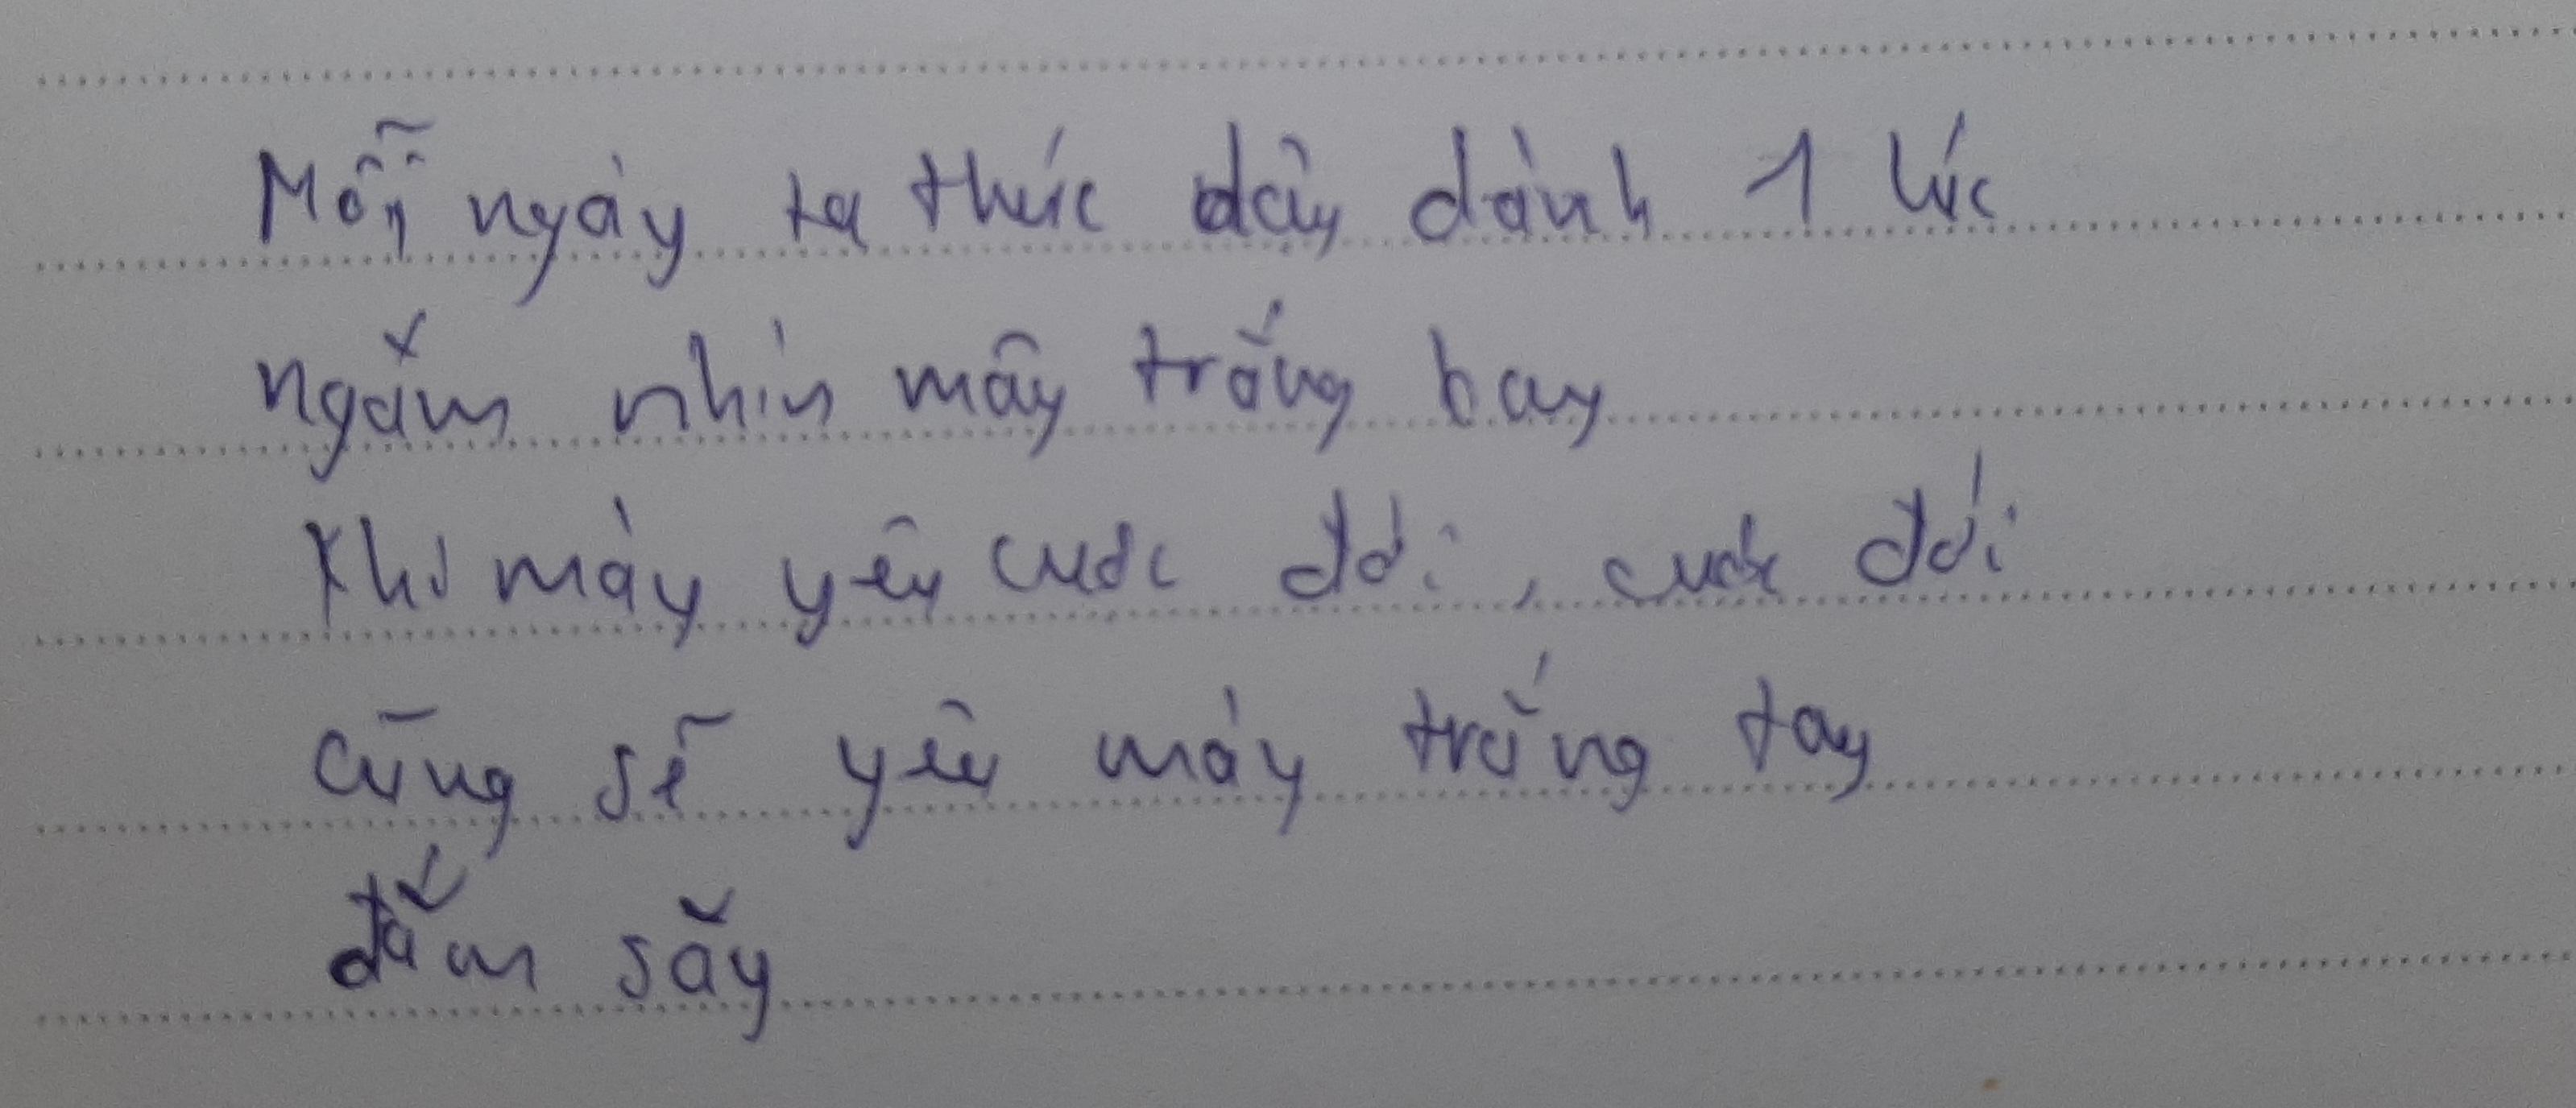 Mỗi ngày ta thức dậy dành 1 lúc
ngắm nhìn mây trắng bay
Khi mày yêu cuộc đời, cuộc đời
cũng sẽ yêu mày trắng tay
đắm sãy